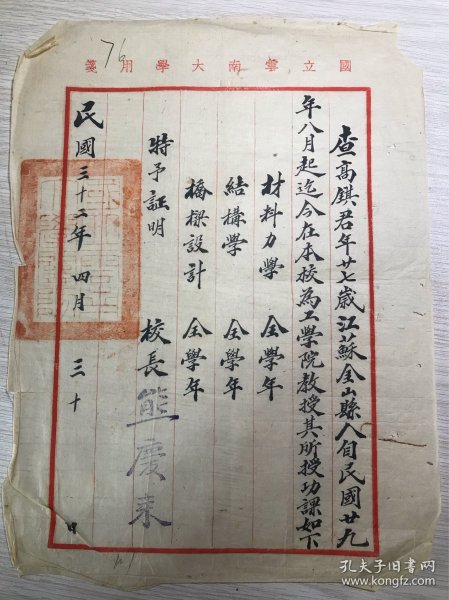 76
國立雲南大學用箋
查高鎮君年廿七歲江蘇金山縣人自民國廿九
年八月起迄今在本校為工學院教授其所授功課如下
材料力學 全學年
結構學 全學年
橋樑設計 全學年
特予証明
校長熊慶來
民國三十二年四月三十日
孔夫子旧书网
www.kongfz.com